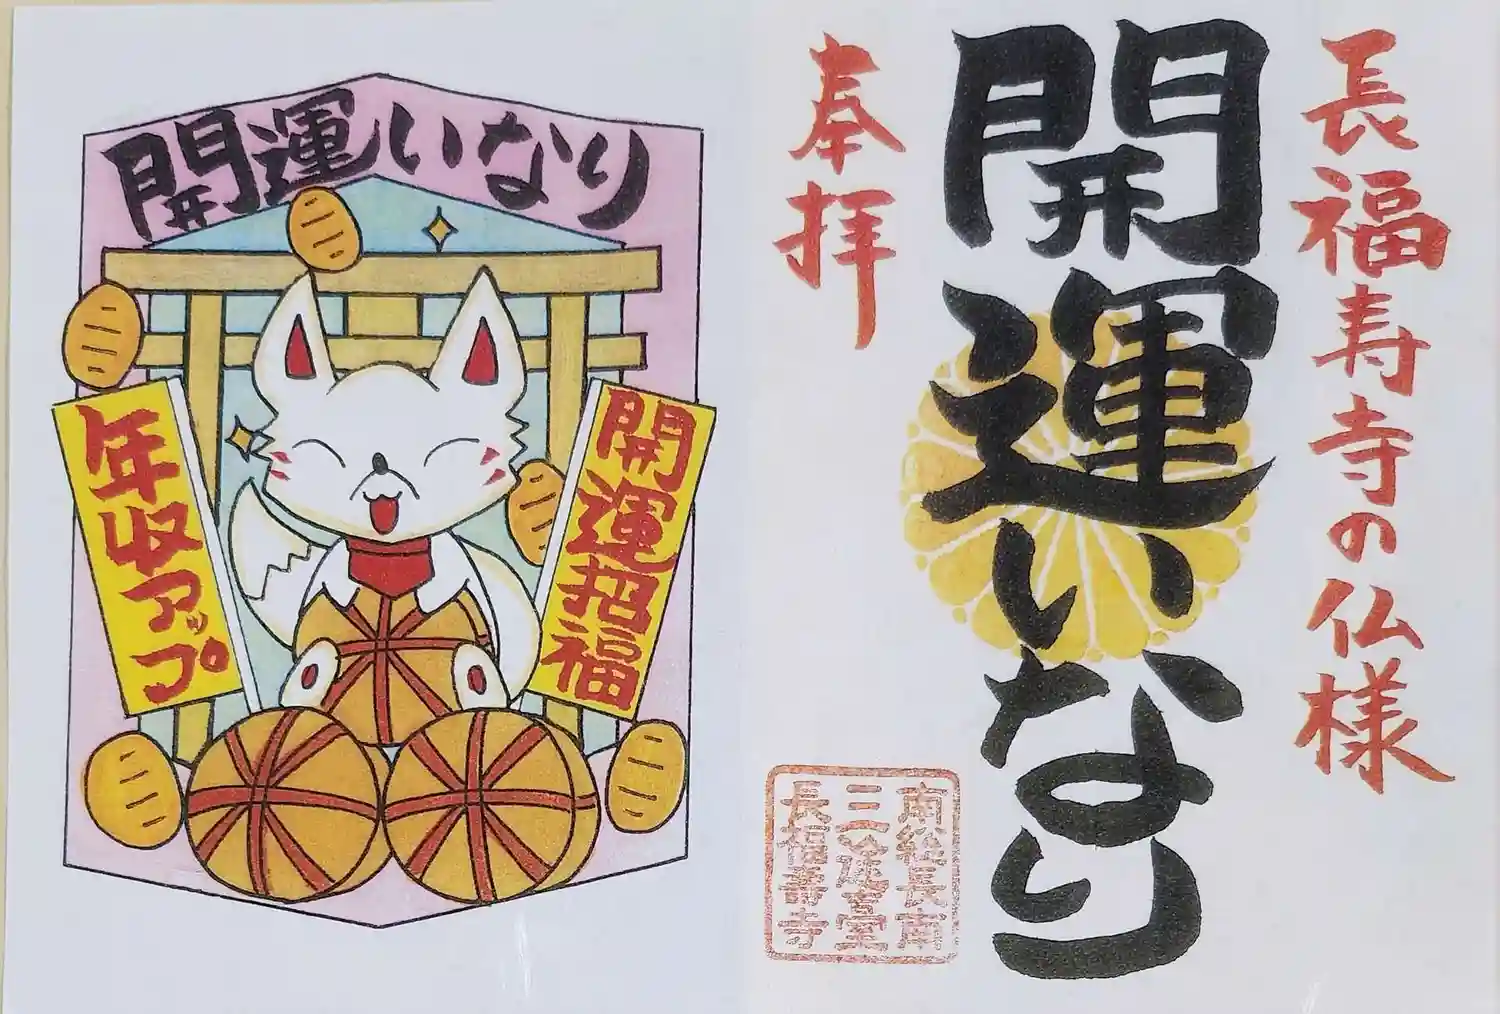 開運いなり
年収アップ
開運招福
長福寿寺の仏様
開運いなり
奉拝
南総長南
三途臺
長福壽寺